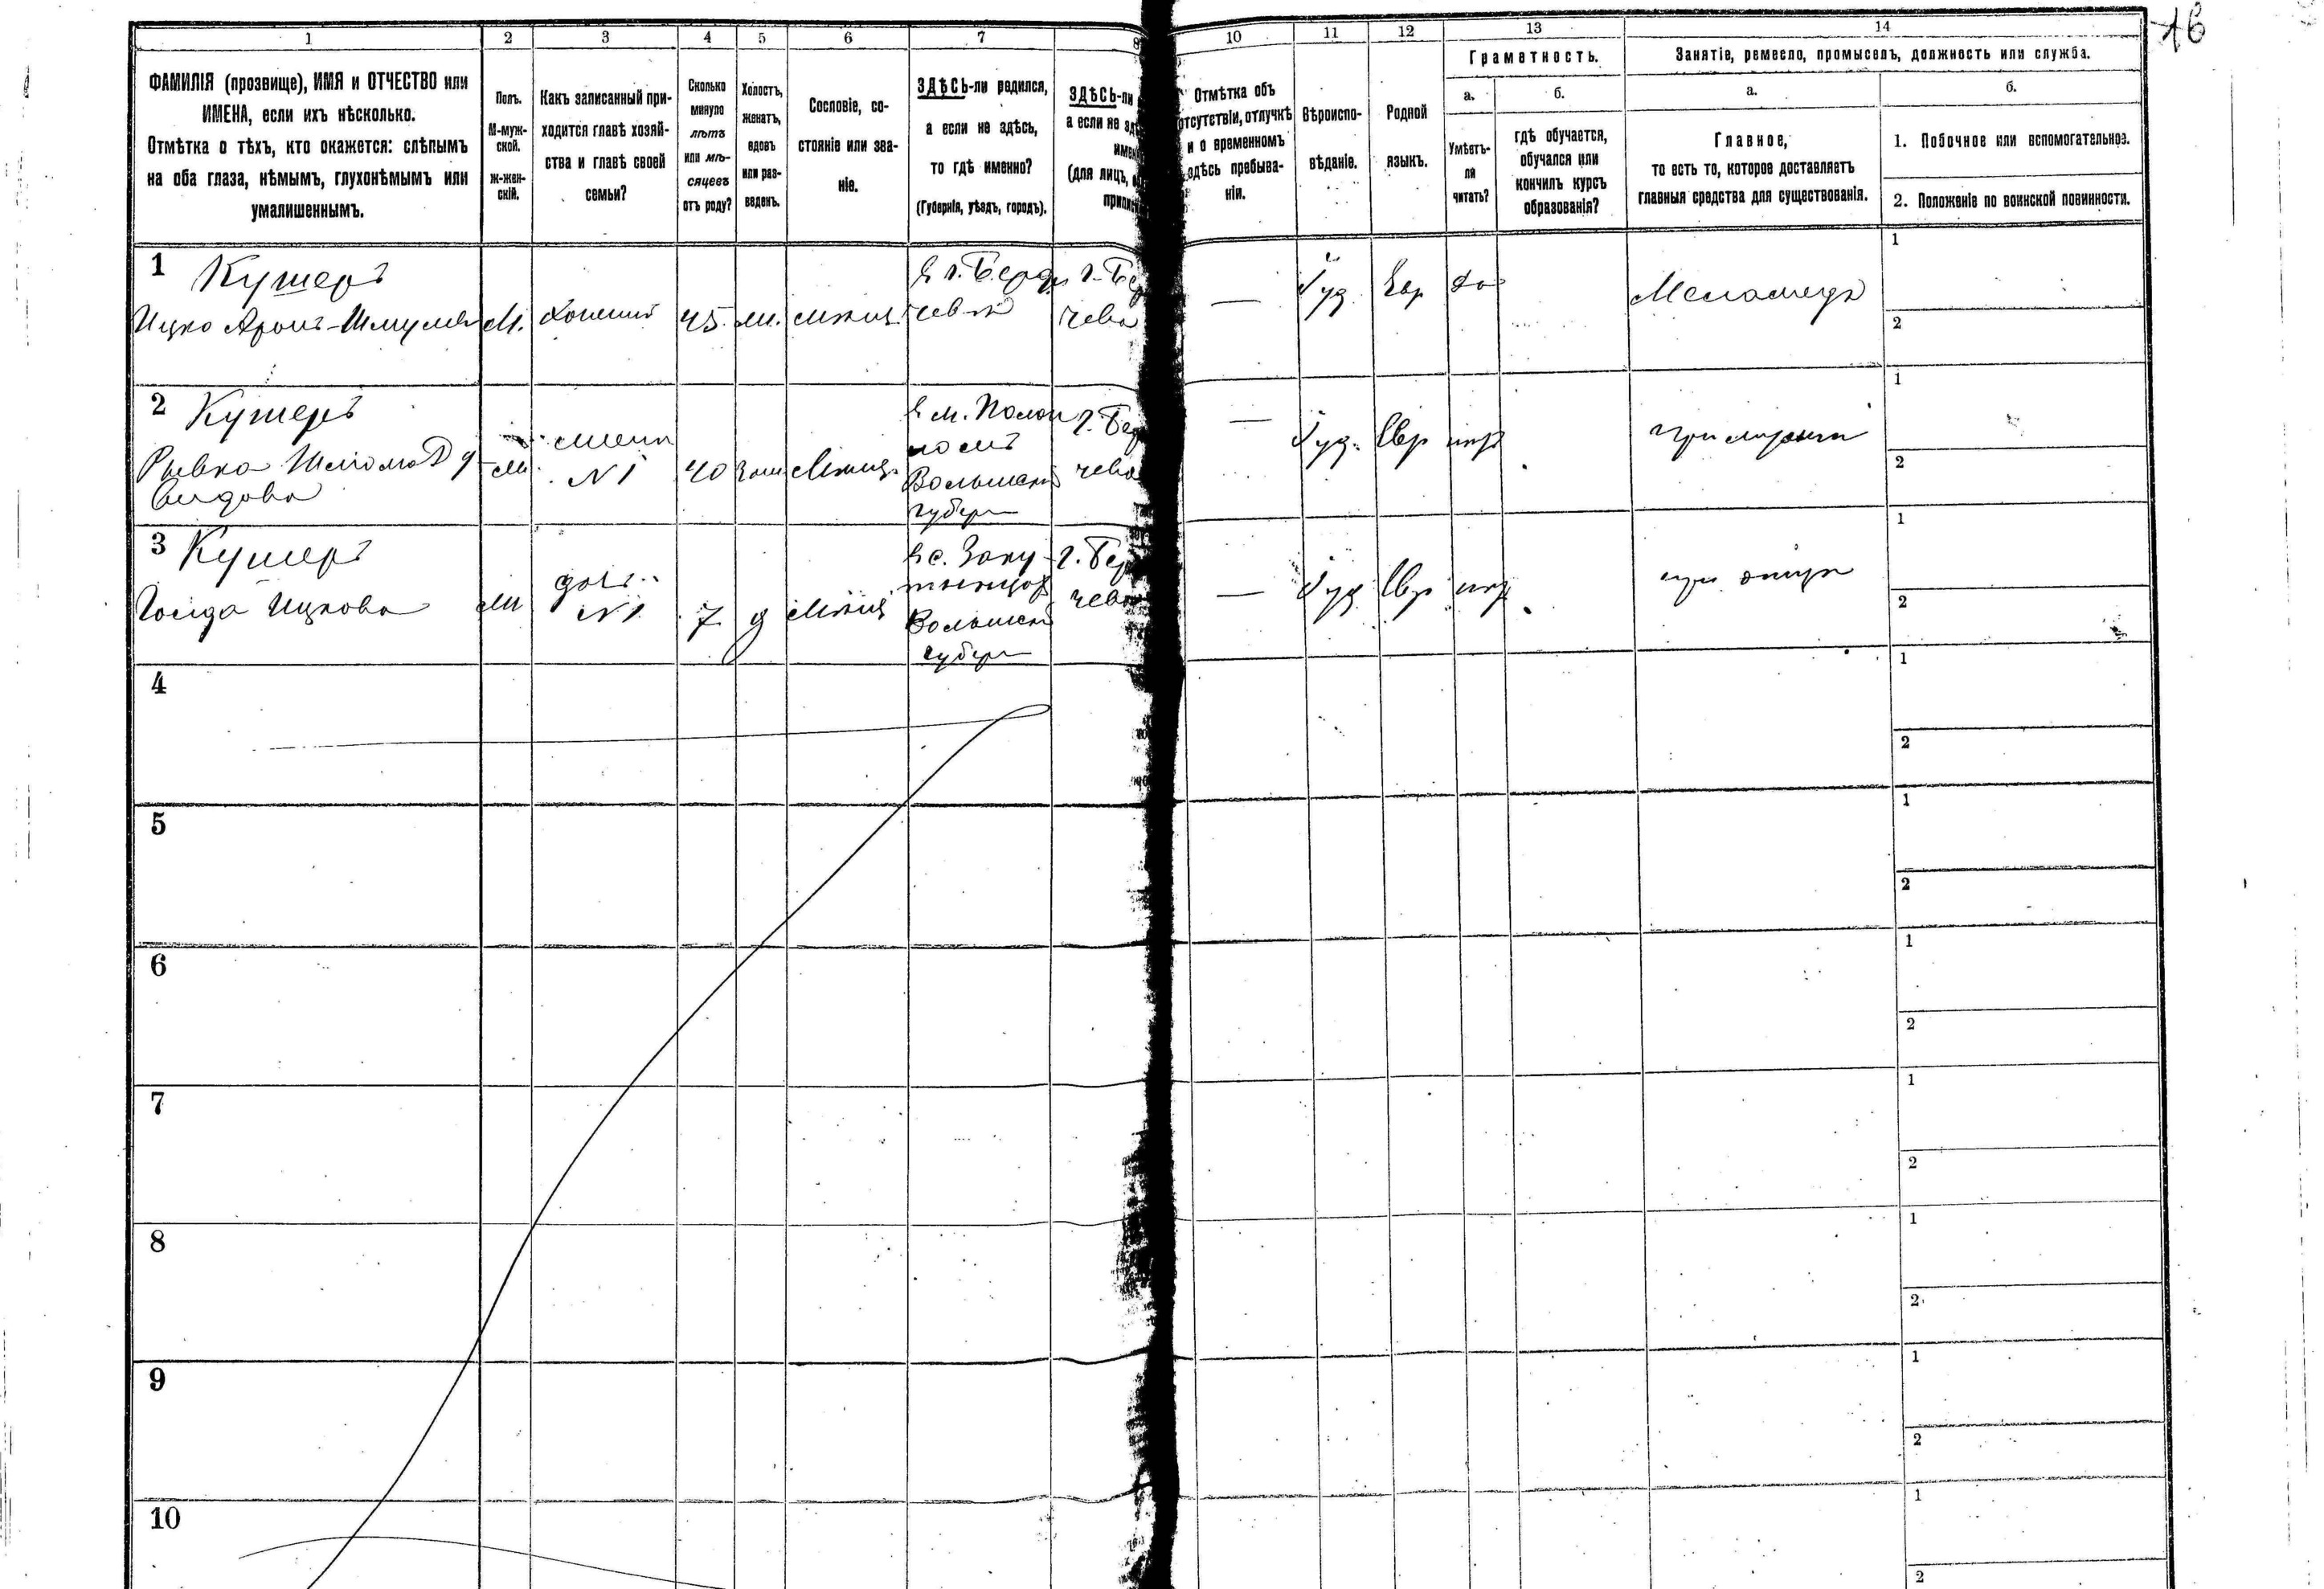 16
1 2 3 4 5 6 7 8 10 11 12 13 14
ФАМИЛІЯ (прозвище), ИМЯ и ОТЧЕСТВО или
ИМЕНА, если ихъ нѣсколько.
Отмѣтка о тѣхъ, кто окажется: слѣпымъ
на оба глаза, нѣмымъ, глухонѣмымъ или
умалишеннымъ.
Полъ.
М-муж-
ской.
Ж-жен-
скій.
Какъ записанный при-
ходится главѣ хозяй-
ства и главѣ своей
семьи?
Сколько
минуло
лѣтъ
или мѣ-
сяцевъ
отъ роду?
Холостъ,
женатъ,
вдовъ
или раз-
веденъ.
Сословіе, со-
стояніе или зва-
ніе.
ЗДѢСЬ-ли родился,
а если не здѣсь,
то гдѣ именно?
(Губернія, уѣздъ, городъ).
ЗДѢСЬ-ли
а если не
(для лицъ,
Отмѣтка объ
отсутствіи, отлучкѣ
и о временномъ
здѣсь пребыва-
ніи.
Вѣроиспо-
вѣданіе.
Родной
языкъ.
Грамотность.
а.
Умѣетъ-
ли
читать?
б.
гдѣ обучается,
обучался или
кончилъ курсъ
образованія?
Занятіе, ремесло, промыселъ, должность или служба.
а.
Главное,
то есть то, которое доставляетъ
главныя средства для существованія.
б.
1. Побочное или вспомогательное.
2. Положеніе по воинской повинности.
1 Кушеръ
Ицко Аронъ-Шмулев
М.
45.
в г. Берди
чевѣ
г. Бер
чева
—
Іуд
Евр
да
Меламедъ
1
2
2 Кушеръ
Ривка Шлiома Д
видова
жена
N 1
40
Зам
Мѣщ.
в м. Полон
номъ
Волынск
губерн
г. Бер
чева
—
Іуд.
Евр
нѣт
при мужѣ
1
2
3 Кушеръ
Голда Ицкова
дочь
N 1
7
д
Мѣщ
в с.
Волынск
губерн
г. Бер
чева
—
Іуд
Евр
нѣт
при отцѣ
1
2
4
1
2
5
1
2
6
1
2
7
1
2
8
1
2
9
1
2
10
1
2